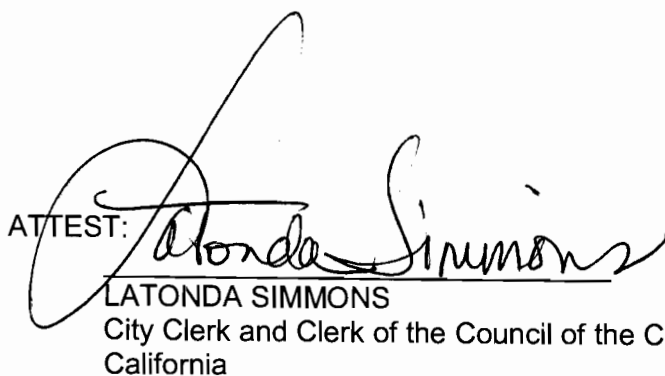 ATTEST: Latonda Simmons
LATONDA SIMMONS
City Clerk and Clerk of the Council of the C
California